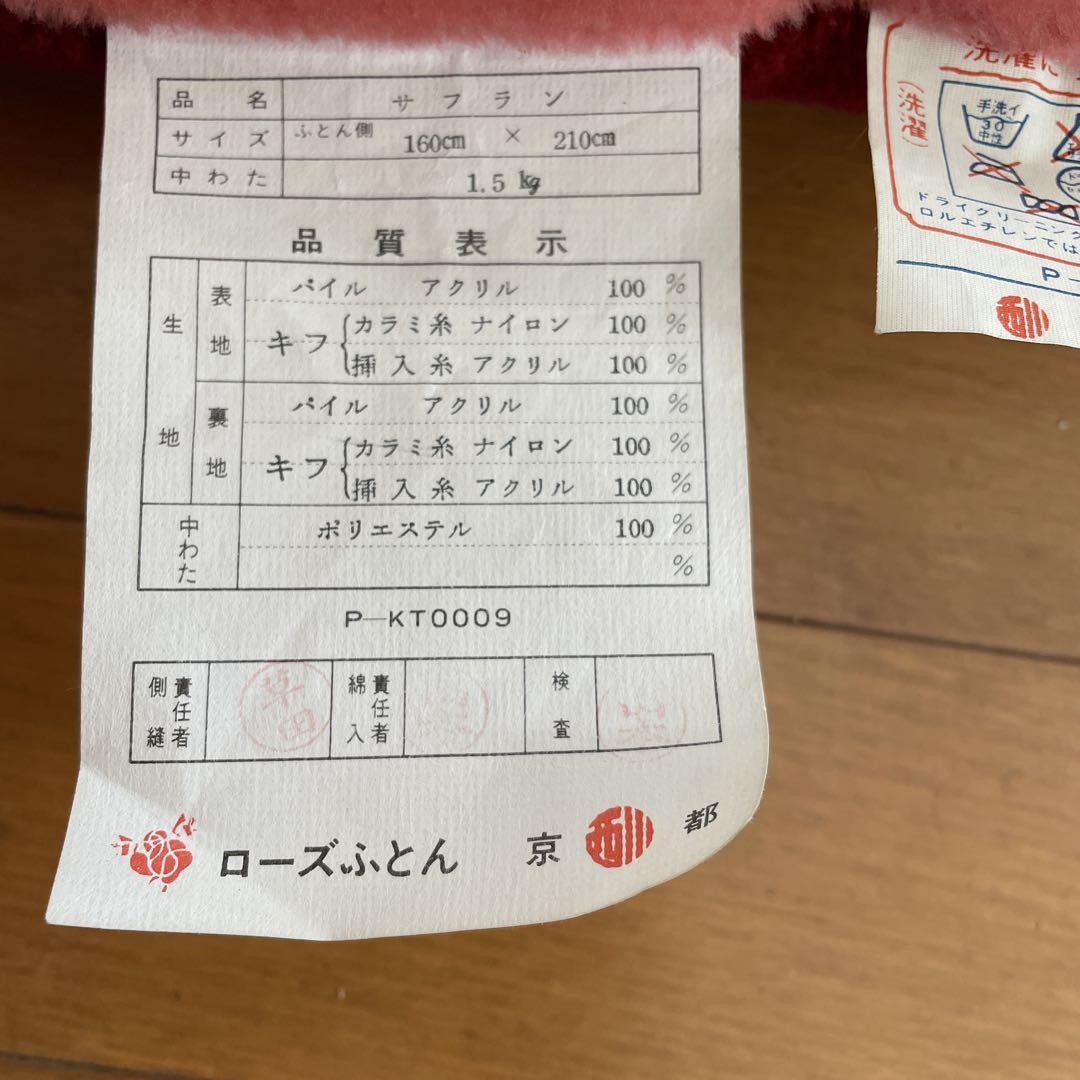 品名 サフラン
サイズ ふとん側 160cm × 210cm
中わた 1.5 kg
品質表示
生地 表地 パイル アクリル 100 %
キフ カラミ糸 ナイロン 100 %
挿入糸 アクリル 100 %
裏地 パイル アクリル 100 %
キフ カラミ糸 ナイロン 100 %
挿入糸 アクリル 100 %
中わた ポリエステル 100 %
%
P—KT0009
側縫責任者 綿入責任者 検査
ローズふとん 京 西川 都
洗濯に
(洗濯)
手洗イ
30
中性
ドライクリーニング
ロルエチレンでは
P—
西川